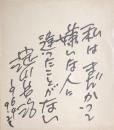 私はまだかつて
嫌いな人に
逢ったことがない
淀川長治